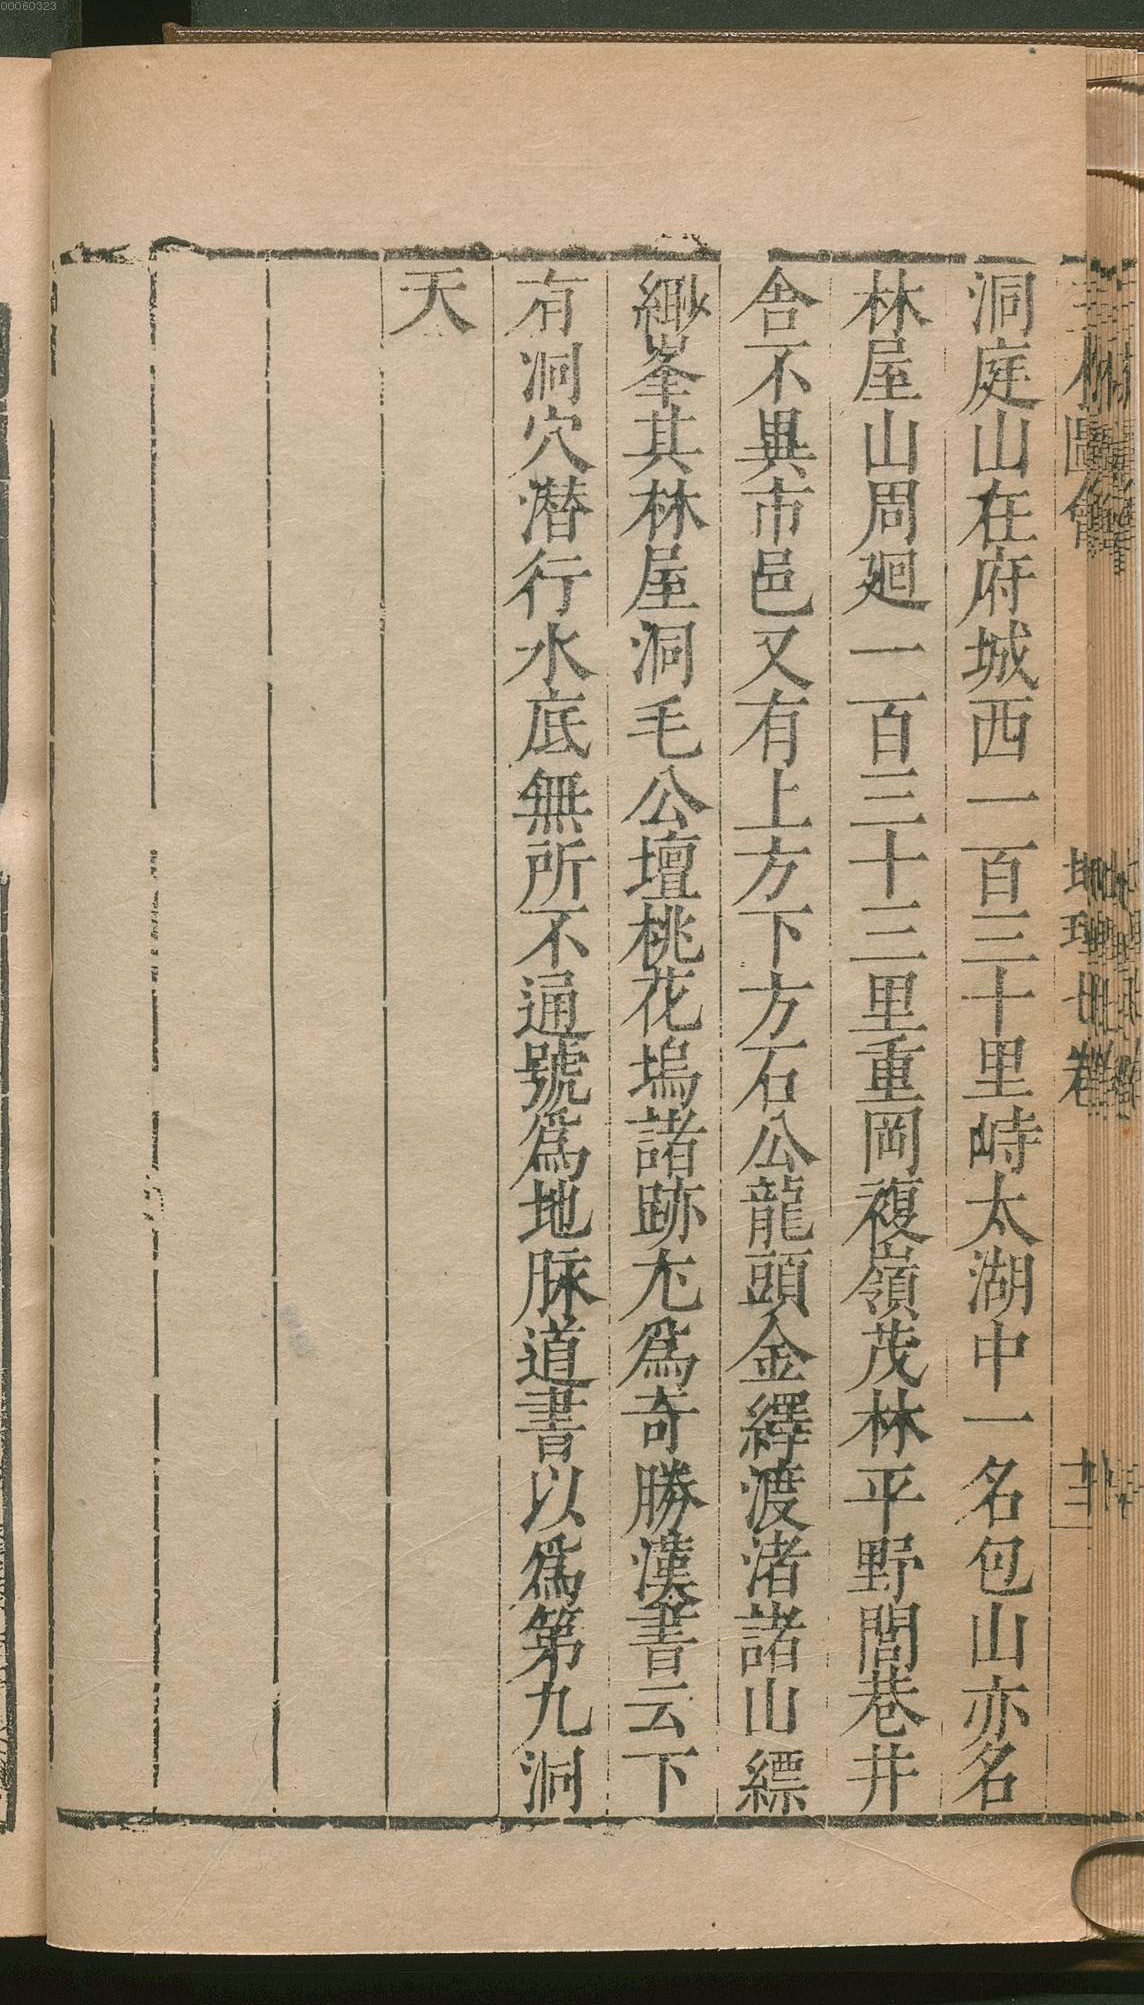 00060323
洞庭山在府城西一百三十里峙太湖中一名包山亦名
林屋山周廻一百三十三里重岡複嶺茂林平野閭巷井
舎不異市邑又有上方下方石公龍頭金繹渡渚諸山縹
緲峯其林屋洞毛公壇桃花塢諸跡尤爲奇勝漢書云下
有洞穴潜行水底無所不通號爲地脉道書以爲第九洞
天